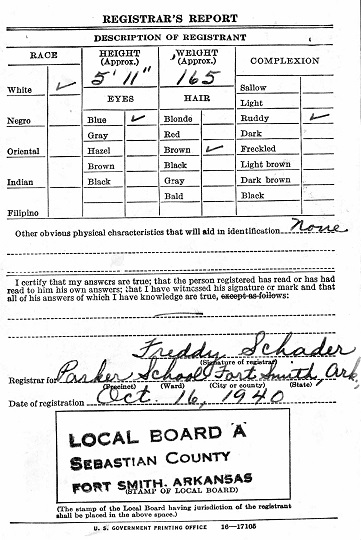 REGISTRAR'S REPORT
DESCRIPTION OF REGISTRANT
RACE
HEIGHT (Approx.)
WEIGHT (Approx.)
COMPLEXION
5' 11"
165
White ✓
EYES
HAIR
Sallow
Light
Negro
Blue ✓
Blonde
Ruddy ✓
Gray
Red
Dark
Oriental
Hazel
Brown ✓
Freckled
Brown
Black
Light brown
Indian
Black
Gray
Dark brown
Bald
Black
Filipino
Other obvious physical characteristics that will aid in identification None
I certify that my answers are true; that the person registered has read or has had
read to him his own answers; that I have witnessed his signature or mark and that
all of his answers of which I have knowledge are true, except as follows:
Freddy Schader
(Signature of registrar)
Registrar for Parker School Fort Smith, Ark,
(Precinct) (Ward) (City or county) (State)
Date of registration Oct. 16, 1940
LOCAL BOARD A
SEBASTIAN COUNTY
FORT SMITH, ARKANSAS
(STAMP OF LOCAL BOARD)
(The stamp of the Local Board having jurisdiction of the registrant
shall be placed in the above space.)
U. S. GOVERNMENT PRINTING OFFICE 16—17105